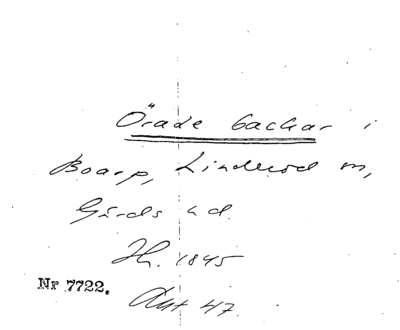 Örade backar i
Boarp, Linderöd sn,
Gärds hd.
Jh. 1845
Nr 7722.
Avt 47.